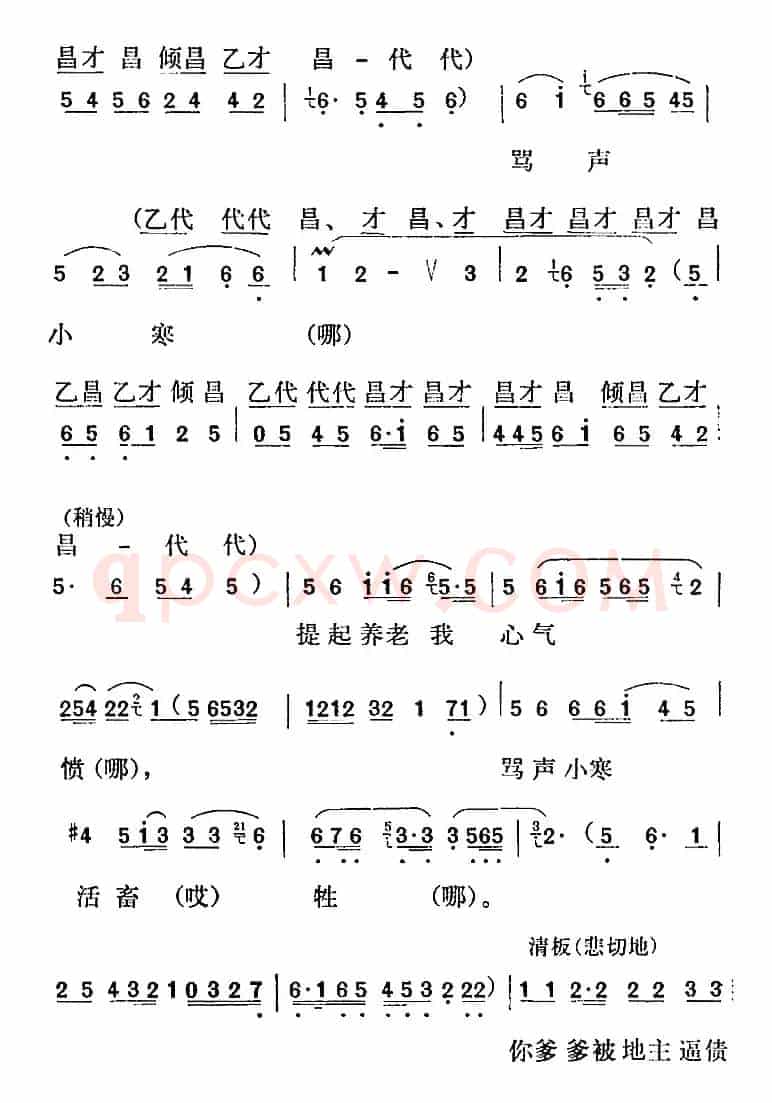 昌才 昌 倾昌 乙才 昌 - 代 代)
5 4 5 6 2 4 4 2 | 1 6· 5 4 5 6) | 6 i 7 6 6 5 45 |
骂 声
(乙代 代代 昌、才 昌、才 昌才 昌才 昌才 昌
5 2 3 2 1 6 6 | 1 2 - V 3 | 2 1 6 5 3 2 (5 |
小 寒 (哪)
乙昌 乙才 倾昌 乙代 代代 昌才 昌才 昌才 昌 倾昌 乙才
6 5 6 1 2 5 | 0 5 4 5 6·i 6 5 | 445 6 i 6 5 4 2
(稍慢)
昌 - 代 代)
5· 6 5 4 5) | 5 6 i i 6 6 5·5 | 5 6 i 6 5 6 5 4 2
qpcxw.COM
提起养老 我 心气
254 22 2 1 (5 6532 | 1212 32 1 71) | 5 6 6 6 i 4 5 |
愤(哪), 骂声小寒
#4 5 i 3 3 3 21 6 | 6 7 6 5 3·3 3 565 | 3 2· (5 6· 1 |
活畜 (哎) 牲 (哪)。
清板(悲切地)
2 5 4 3 2 1 0 3 2 7 | 6·1 6 5 4 5 3 2 22) | 1 1 2·2 2 2 3 3
你爹 爹被 地主 逼债